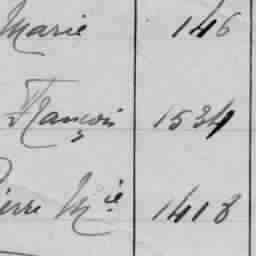 Marie 146
François 1534
Pierre Mie 1418